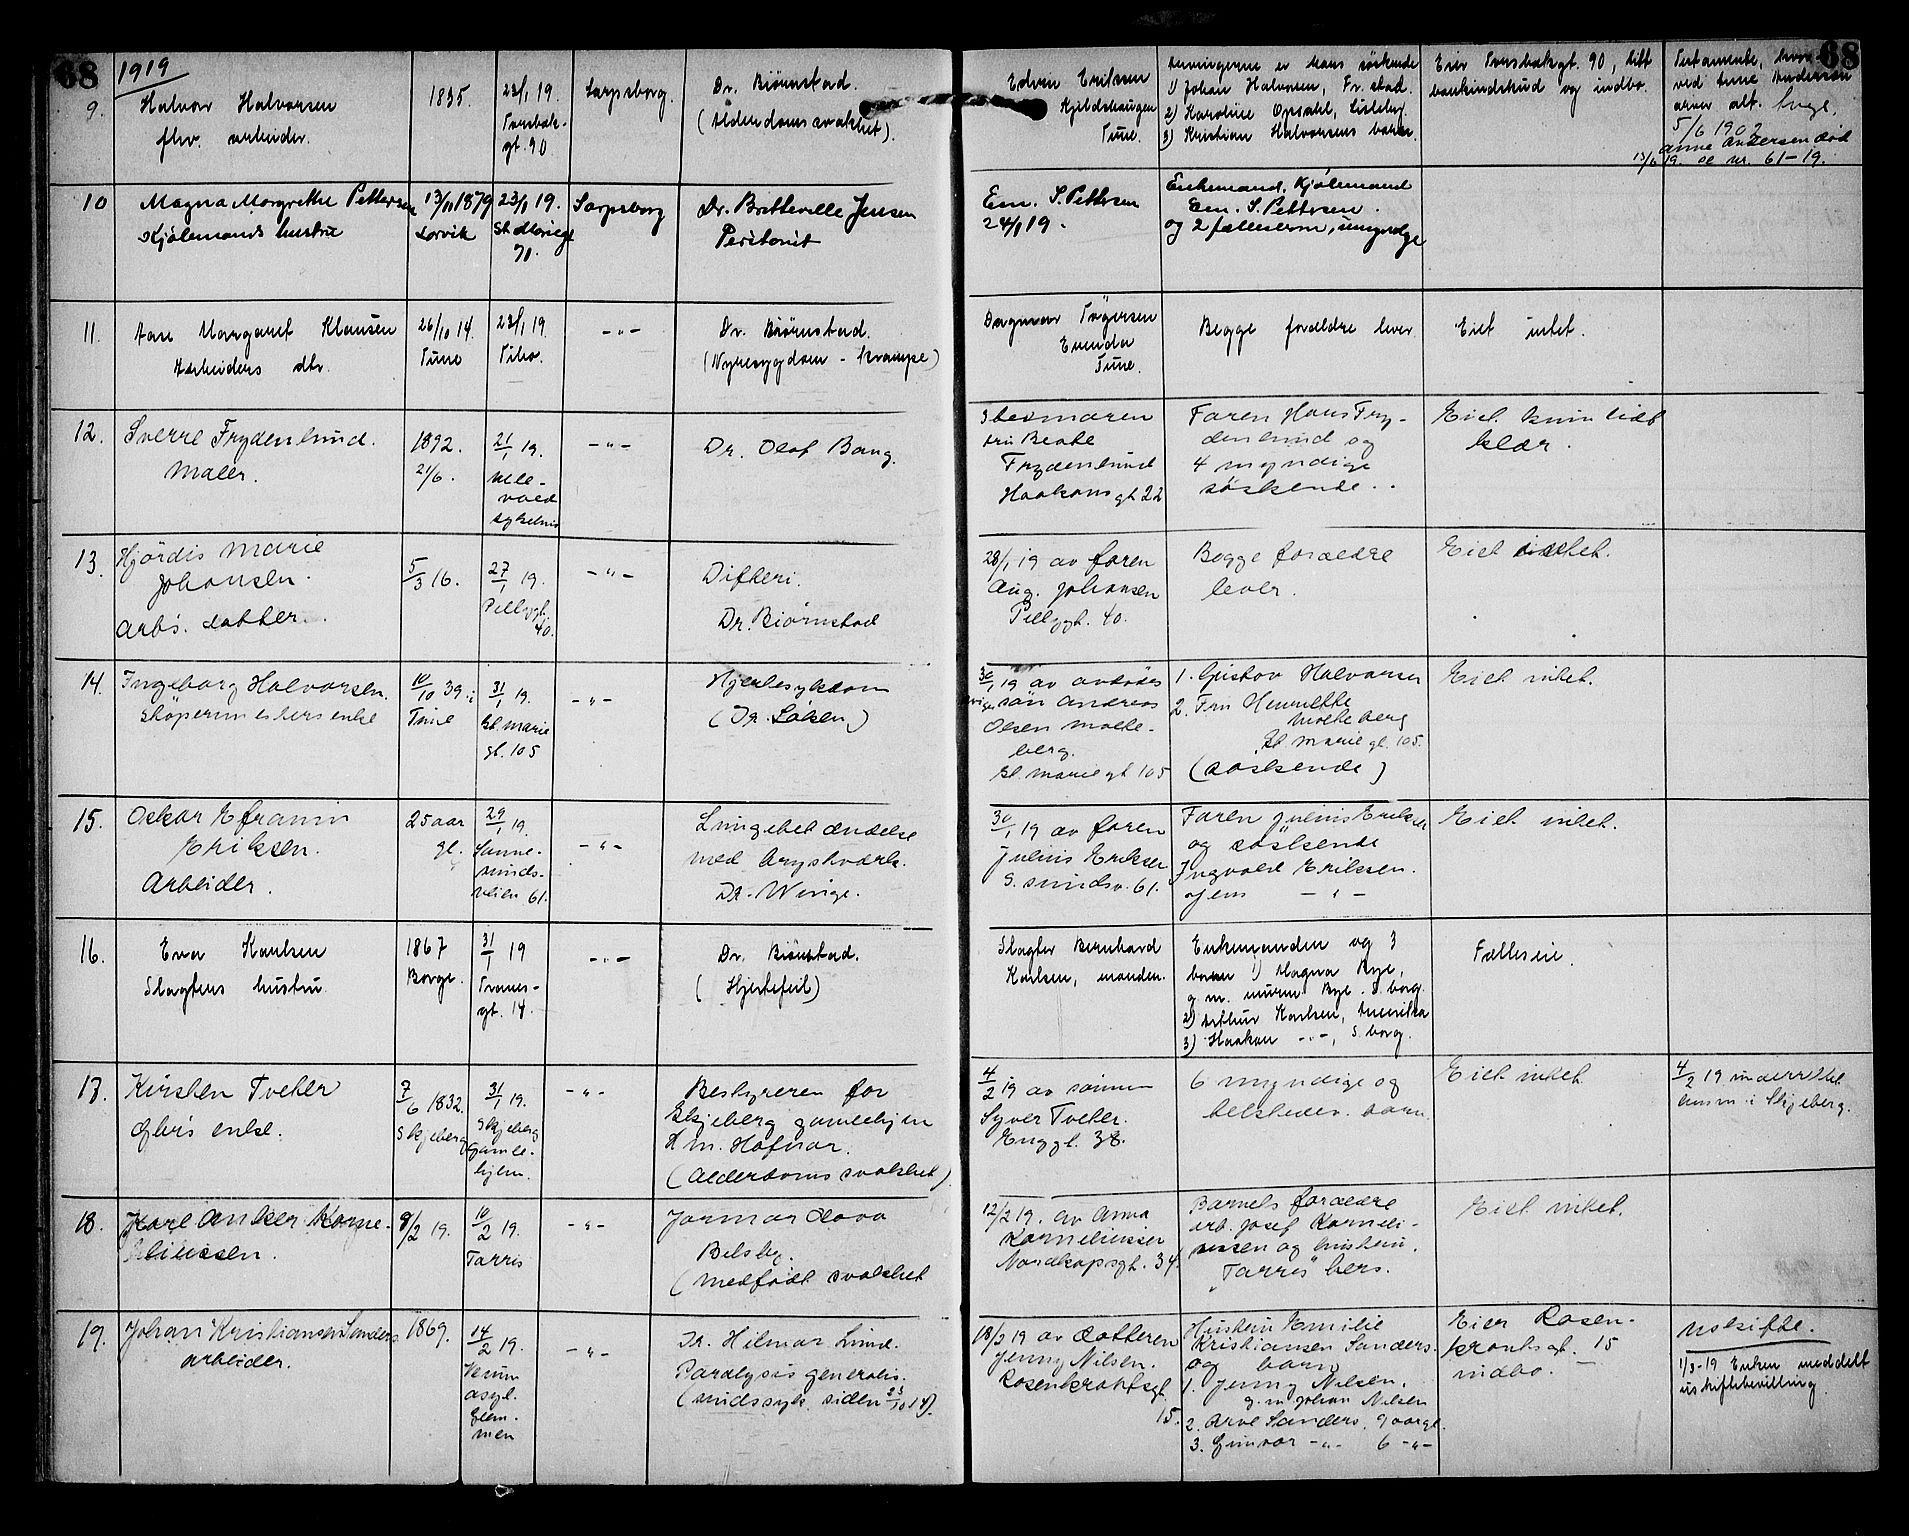 68
1919
68
9.
Halvor Halvorsen
fhv. arbeider.
1835.
23/1 19.
Torsbæk-
gt. 90
Sarpsborg.
Dr. Biørnstad.
(Alderdomssvakhet).
Edvin Eriksen
Kjeldshaugen
Tune.
Arvingerne er hans søskende
1) Johan Halvorsen, Fr.stad.
2) Karoline Opsahl, Lisleby
3) Kristian Halvorsens barn.
Eier Torsbækgt. 90, litt
bankindskud og indbo.
Testamente, hvor
ved Anne Andersen
arver alt.
5/6 1902
Anne Andersen død
13/6 19. se nr. 61-19.
10
Magna Margrethe Pettersen
Kjølemands hustru
13/11 1879
Larvik
23/1 19.
St. Mariegt
70.
Sarpsborg
Dr. Britteville Jensen
Peritonit
Em. S. Pettersen
24/1 19.
Enkemand, Kjølemand
Em. S. Pettersen.
og 2 fællesbarn, umyndige
11.
Aase Margaret Klausen
Arbeiders dtr.
26/10 14.
Tune
23/1 19
Tibo.
-"-
Dr. Biørnstad.
(Nyresygdom - krampe)
Dagmar Tøgersen
Enenda
Tune.
Begge forældre lever
Eiet intet.
12.
Sverre Frydenlund.
Maler.
1892.
21/6.
21/1 19.
Ulle-
vaal
sykehus
-"-
Dr. Olaf Bang.
Stesmoren
fru Beate
Frydenlund
Haakonsgt 22
Faren Hans Fry-
denlund og
4 myndige
søskende.
Eiet kun lidt
klær.
13.
Hjørdis Marie
Johansen.
Arb's. datter.
5/3 16.
27/1 19.
Pellygt.
40.
-"-
Difteri.
Dr. Biørnstad
28/1 19 av faren
Aug. Johansen
Pellygt. 40.
Begge forældre
lever.
Eiet intet.
14.
Ingeborg Halvorsen.
Skipperm esters enke
10/10 39 i
Tune
31/1 19.
St. Marie
gt. 105
-"-
Hjertesykdom
(Dr. Løken)
30/1 19 av avdødes
søn Andreas
Olsen Molle-
berg.
St. Marie gt 105
1. Gustav Halvorsen
2. Fru Henriette
Molleberg
St Marie gt. 105.
(søskende)
Eiet intet.
15.
Oskar Efraim
Eriksen.
Arbeider.
25 aar
gl.
29/1 19.
Sanne-
sunds-
veien 61.
-"-
Lungebetændelse
med brystværk.
Dr. Winge.
30/1 19 av faren
Julius Eriksen
S. sundsv. 61.
Faren Julius Eriksen
og søskende
Ingvald Eriksen.
Jens -"-
Eiet intet.
16.
Eva Karlsen
Slagters hustru
1867
Borge.
31/1 19
Tranes-
gt. 14.
-"-
Dr. Biørnstad.
(Hjertefeil)
Slagter Bernhard
Karlsen, manden.
Enkemanden og 3
barn 1) Magna Bye,
g. m. murer Bye. S.borg.
2) Arthur Karlsen, Amerika
3) Haakon -"-, S.borg.
Fælleseie.
17.
Kirsten Tveter
Gbr's enke.
7/6 1832.
Skjeberg
31/1 19.
Skjeberg
Gamle-
hjem.
-"-
Bestyreren for
Skjeberg gamlehjem
K m. Hafnor.
(Alderdoms svakhet)
4/2 19 av sønnen
Syver Tveter.
Enggt. 38.
6 myndige og
tilstedev. barn.
Eiet intet.
4/2 19 underrettet
lensm i Skjeberg.
18.
Karl Anker Korne-
liussen.
9/2 19.
10/2 19.
Tarris
-"-
Jormor Lova
Bilsby.
(medfødt svakhet
12/2 19. av Anna
Korneliussen
Nordkapsgt. 34.
Barnets forældre
arb. Josef Korneli-
ussen og hustru.
"Tarris" hers.
Eiet intet.
19.
Johan Kristiansen Sanders
arbeider.
1869.
14/2 19.
Venum
asyl.
Glem-
men
-"-
Dr. Hilmar Lund.
Paralysis generalis.
(sindssyk siden 23/10 18).
18/2 19 av datteren
Jenny Nilsen.
Rosenkrantsgt.
15.
Hustru Emilie
Kristiansen Sanders.
og barn
1. Jenny Nilsen.
g. m Johan Nilsen
2. Arne Sanders. 9 aar gl.
3. Gunvor -"- 6 -"-
Eier Rosen-
krantsgt. 15
indbo.
Uskifte.
1/3-19 Enken meddelt
uskiftebevilling.